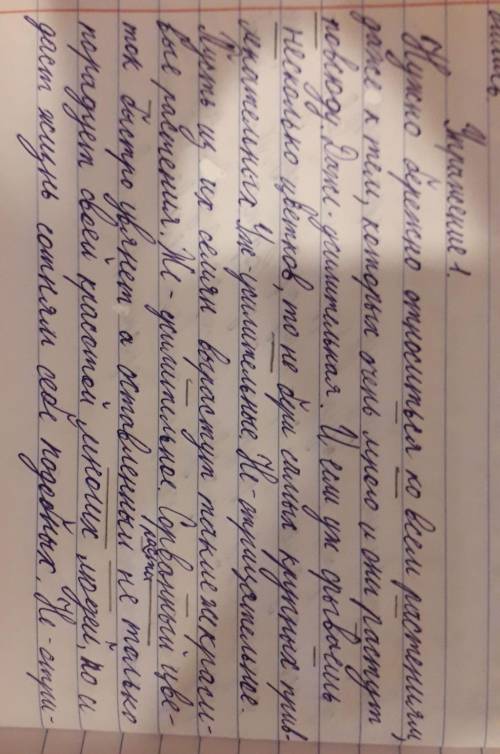 Упражнение 1.
Нужно бережно относиться ко всем растениям,
даже к тем, которых очень много и они растут
повсюду. Даже-усилительная. И если уж срываешь
несколько цветков, то не бери самых крупных прив-
лекательных. Уж-усилительные. Не-отрицательное.
Пусть из их семян вырастут такие же краси-
вые растения. Же-усилительное. Сорванный цве-
ток быстро увянет а оставленный не только
порадует своей красотой многих людей, но и
даст жизнь сотням себе подобных. Не-отри-